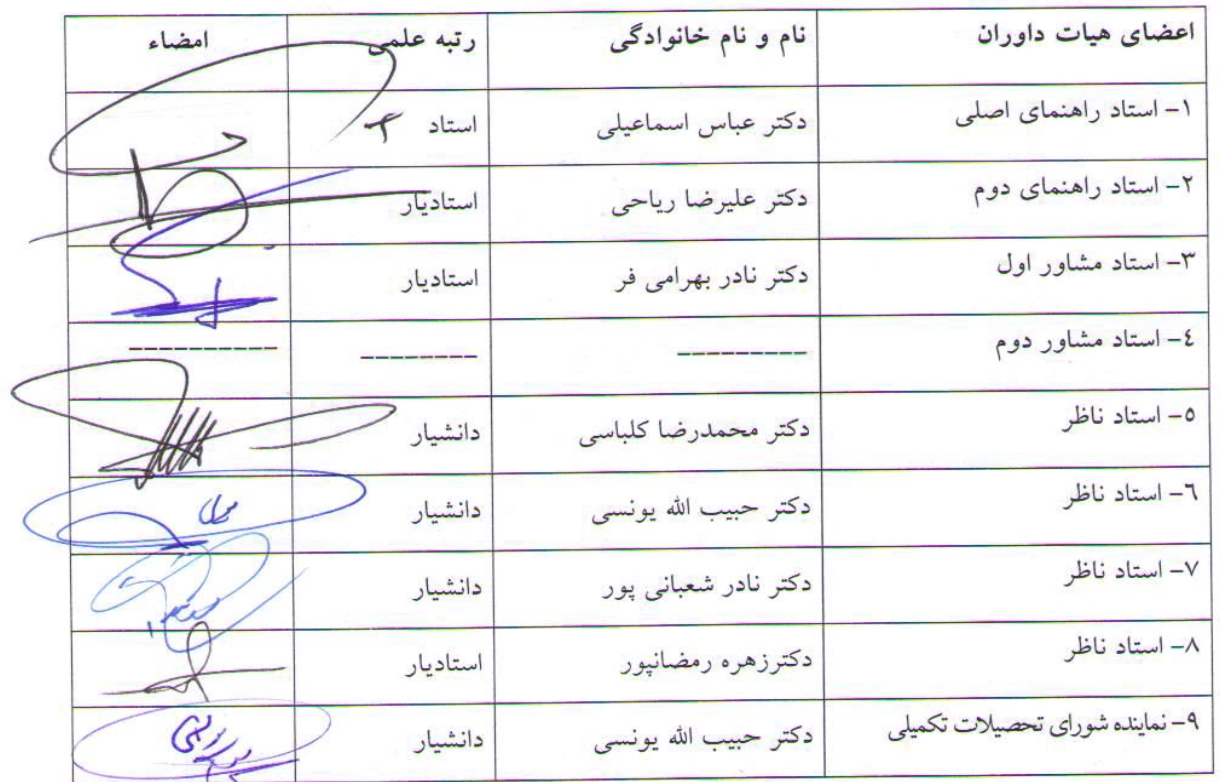 اعضای هیات داوران نام و نام خانوادگی رتبه علمی امضاء
۱- استاد راهنمای اصلی دکتر عباس اسماعیلی استاد
۲- استاد راهنمای دوم دکتر علیرضا ریاحی استادیار
۳- استاد مشاور اول دکتر نادر بهرامی فر استادیار
٤- استاد مشاور دوم --------- -------- ----------
٥- استاد ناظر دکتر محمدرضا کلباسی دانشیار
٦- استاد ناظر دکتر حبیب الله یونسی دانشیار
۷- استاد ناظر دکتر نادر شعبانی پور دانشیار
۸- استاد ناظر دکترزهره رمضانپور استادیار
۹- نماینده شورای تحصیلات تکمیلی دکتر حبیب الله یونسی دانشیار